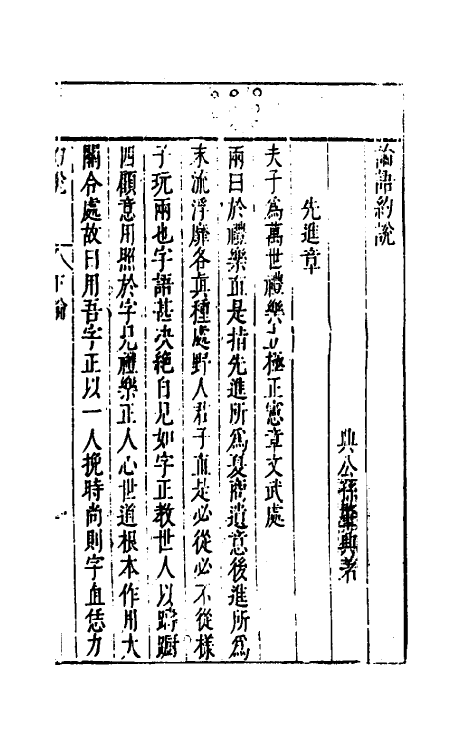 論語約說
典公孫肇興著
先進章
夫子為萬世禮樂立極正憲章文武處
兩曰於禮樂直是指先進所為夏商遺意後進所為
末流浮靡各真種處野人君子直是必從必不從樣
子玩兩也字語甚決絕自見如字正教世人以躊躇
四顧意用照於字見禮樂正人心世道根本作用大
關令處故曰用吾字正以一人挽時尚則字直恁力
約說
下論
一